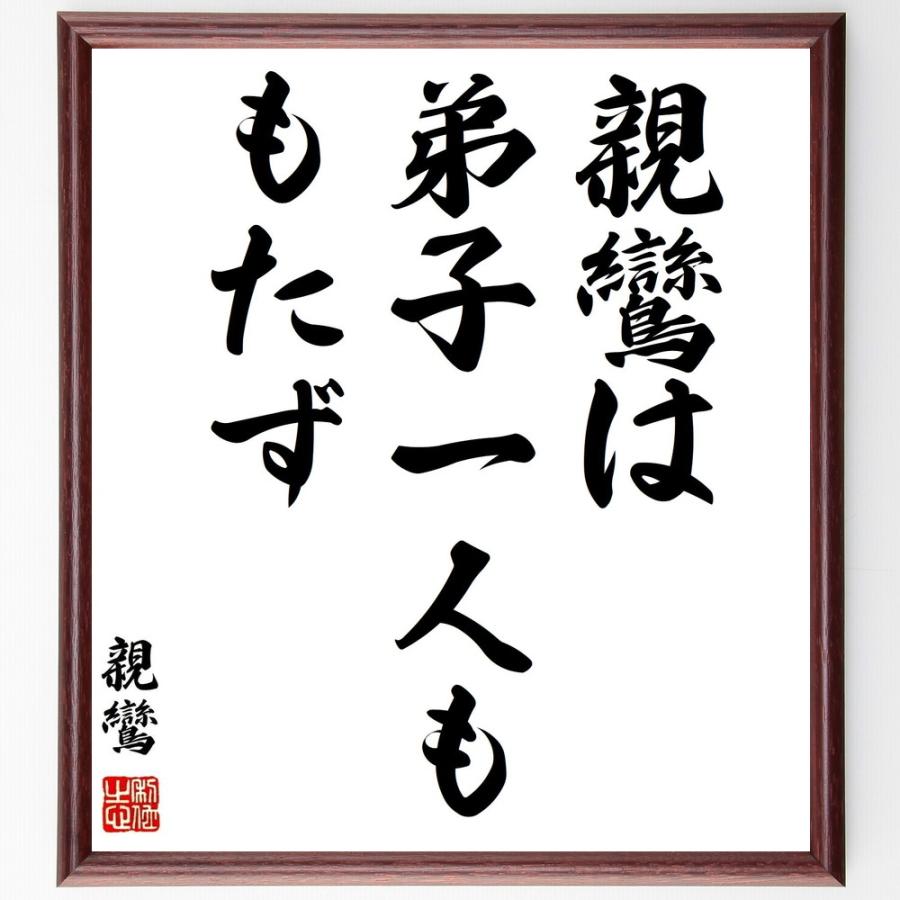 親鸞は
弟子一人も
もたず
親鸞